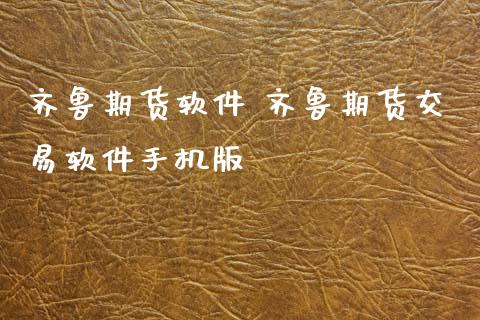 齐鲁期货软件 齐鲁期货交
易软件手机版